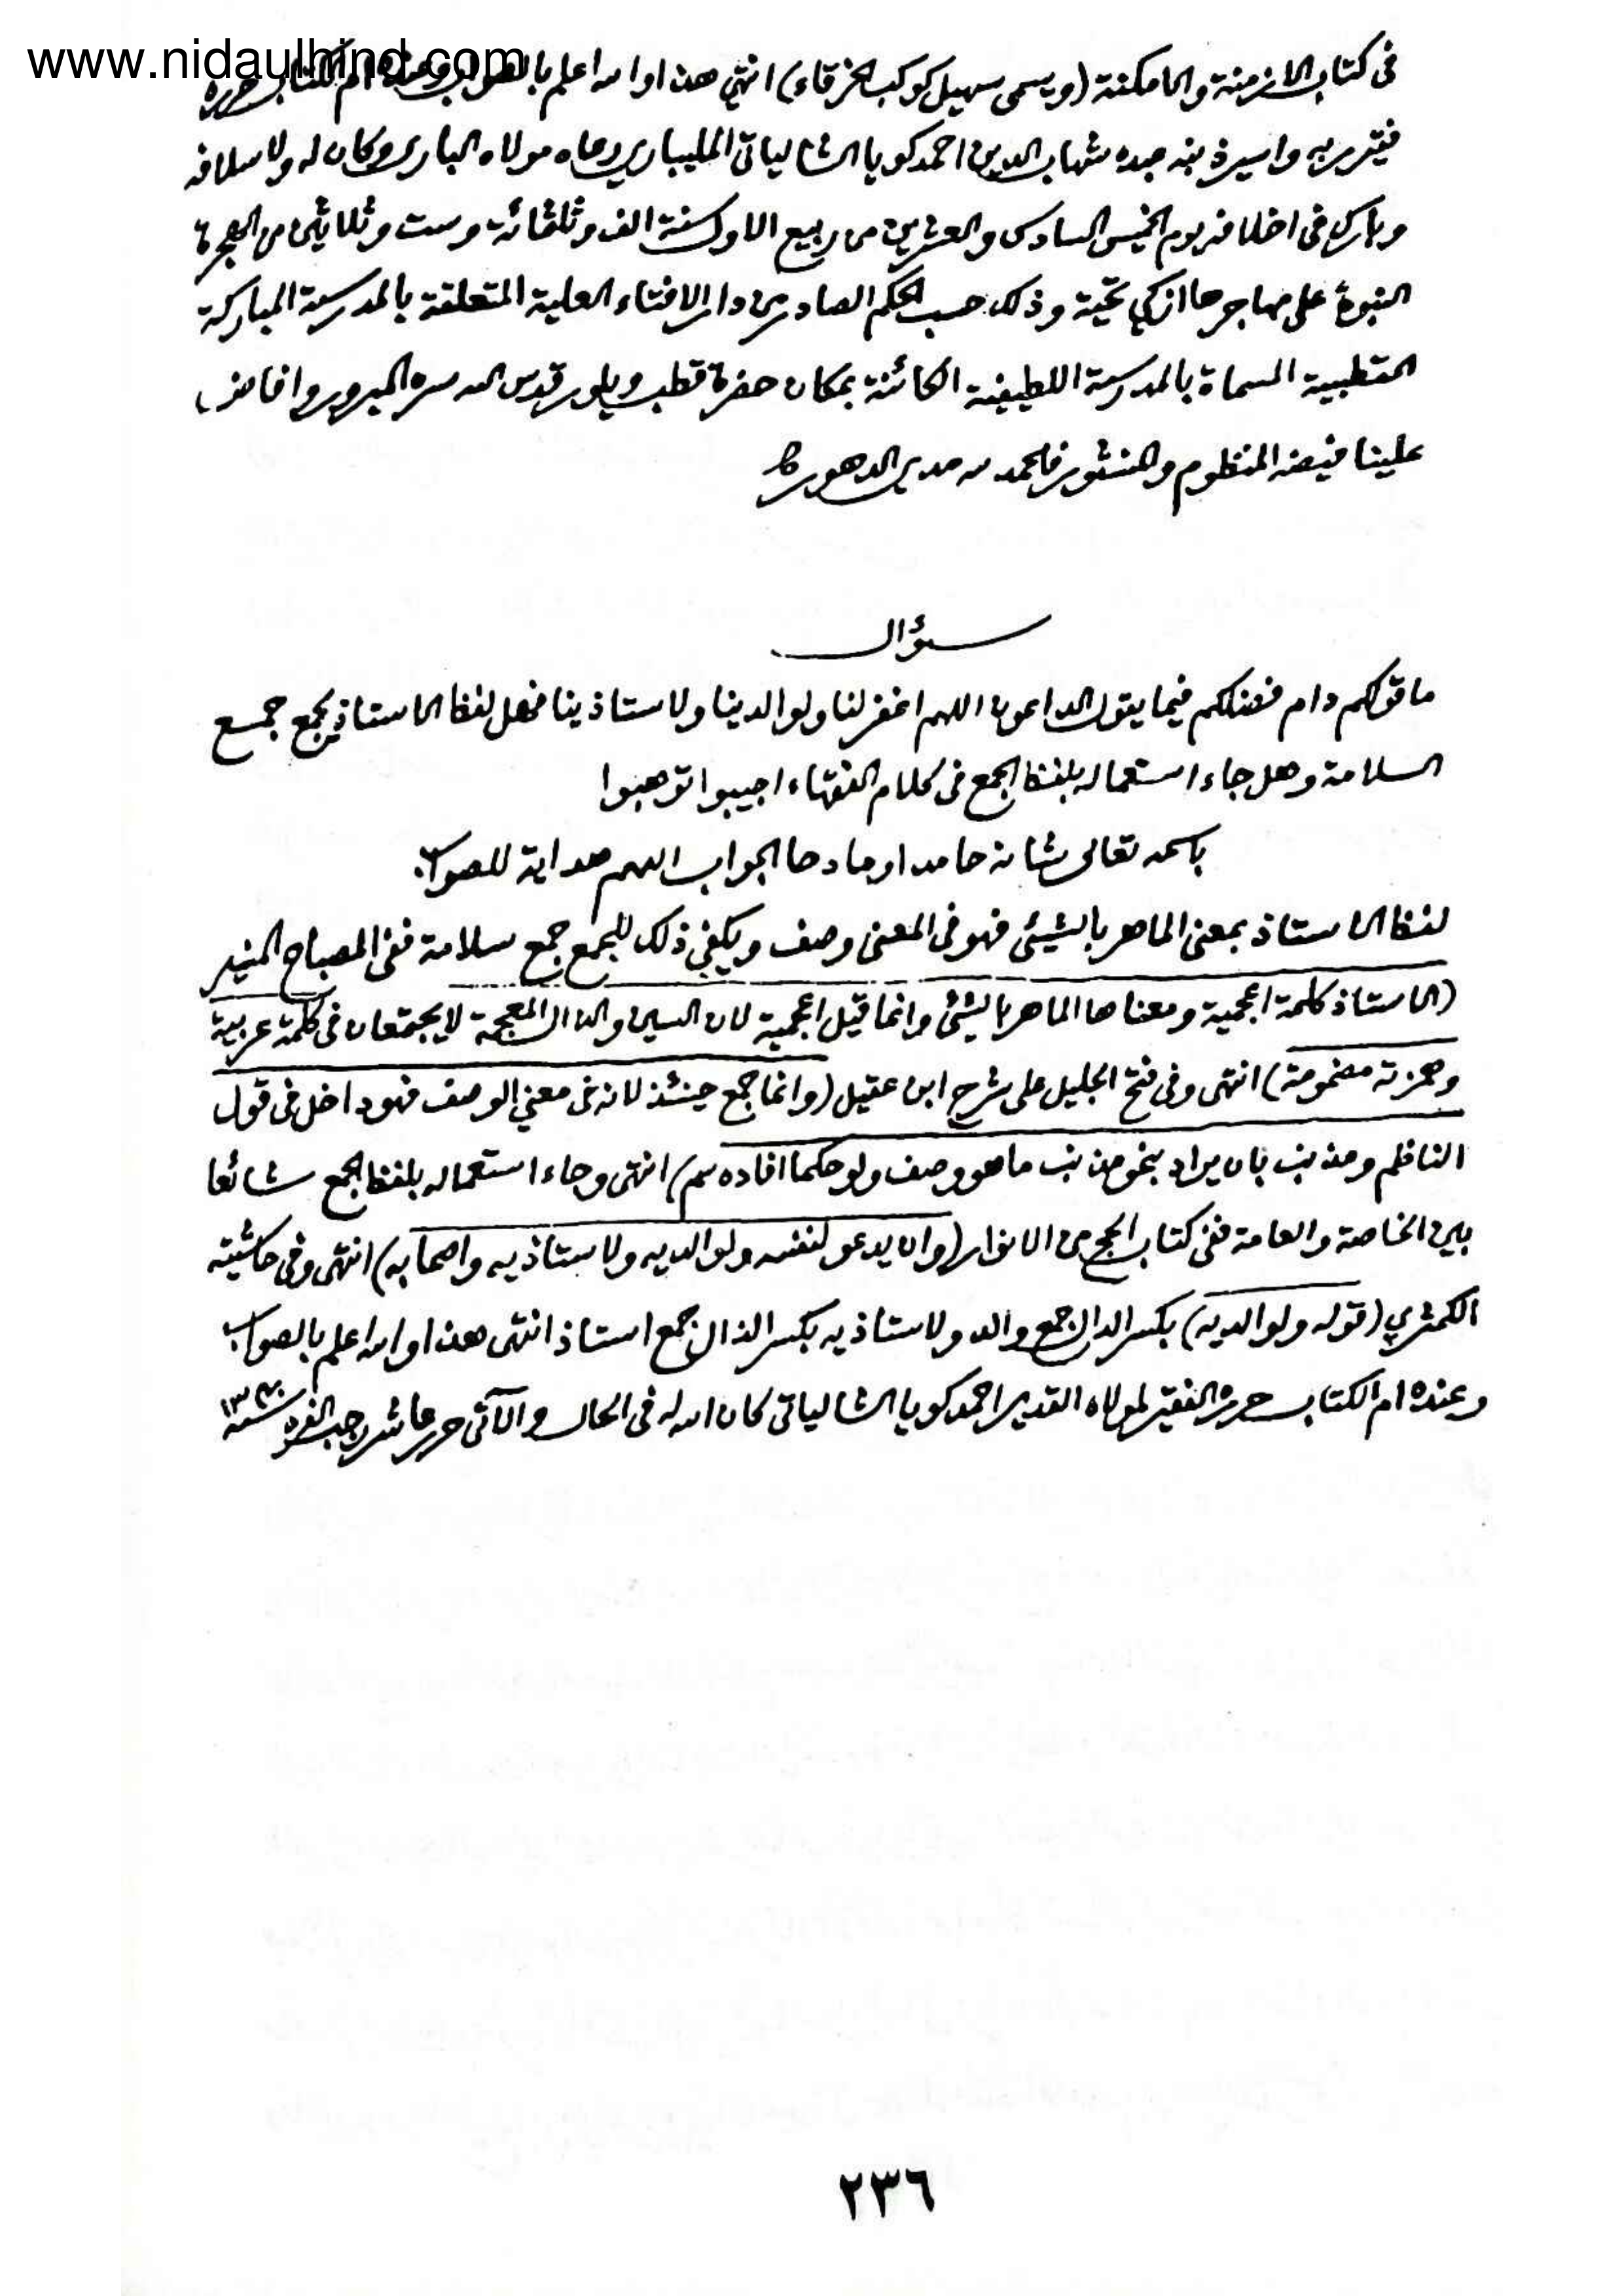 www.nidaulhind.com
فى كتاب الازمنة والامكنة (ويسمى سهيل كوكب الخرقاء) انتهى هذا والله اعلم بالصواب وعنده ام الكتاب حرره
فقير ربه واسير ذنبه عبده شهاب الدين احمد كويا الشالياتى المليبارى رعاه مولاه البارى وكان له ولاسلافه
وبارك فى اخلافه يوم الخميس السادس والعشرين من ربيع الاول سنة الف وثلثمائة وست وثلاثين من الهجرة
النبوة على مهاجرها ازكى تحية وذلك حسب الحكم الصادر من دار الافتاء العلية المتعلقة بالمدرسة المباركة
القطبية المسماة بالمدرسة اللطيفية الكائنة بمكان حضرة قطب ويلور قدس الله سره المبرور وافاض
علينا فيضه المنظوم والمنثور فالحمد لله مدى الدهور
سؤال
ما قولكم دام فضلكم فيما يقول الداعون اللهم اغفر لنا ولوالدينا ولاستاذينا فهل لفظ الاستاذ يجمع جمع
السلامة وهل جاء استعماله بلفظ الجمع فى كلام الفقهاء اجيبوا توهبوا
باسمه تعالى شانه حامدا ومادحا الجواب اللهم هداية للصواب
لفظ الاستاذ بمعنى الماهر بالشيئ فهو فى المعنى وصف ويكفي ذلك للجمع جمع سلامة ففى المصباح المنير
(الاستاذ كلمة اعجمية ومعناها الماهر بالشيئ وانما قيل اعجمية لان السين والذال المعجمة لا يجتمعان فى كلمة عربية
وهمزته مضمومة) انتهى وفى فتح الجليل على شرح ابن عقيل (وانما جمع حينئذ لانه فى معنى الوصف فهو داخل فى قول
الناظم ومذنب بان يراد بنحو مذنب ما هو وصف ولو حكما افاده سم) انتهى وجاء استعماله بلفظ الجمع شائعا
بين الخاصة والعامة ففى كتاب الحج من الانوار (وان يدعو لنفسه ولوالديه ولاستاذيه واصحابه) انتهى وفى حاشيته
الكمثري (قوله ولوالديه) بكسر الدال جمع والد ولاستاذيه بكسر الذال جمع استاذ انتهى هذا والله اعلم بالصواب
وعنده ام الكتاب حرره الفقير لمولاه القدير احمد كويا الشالياتى كان الله له فى الحال والآتى حرر عاشر رجب الفرد سنة
٢٣٦